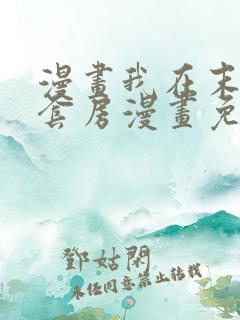 漫畫我在末
套房漫畫免
鄧姑閑
未經同意禁止转载